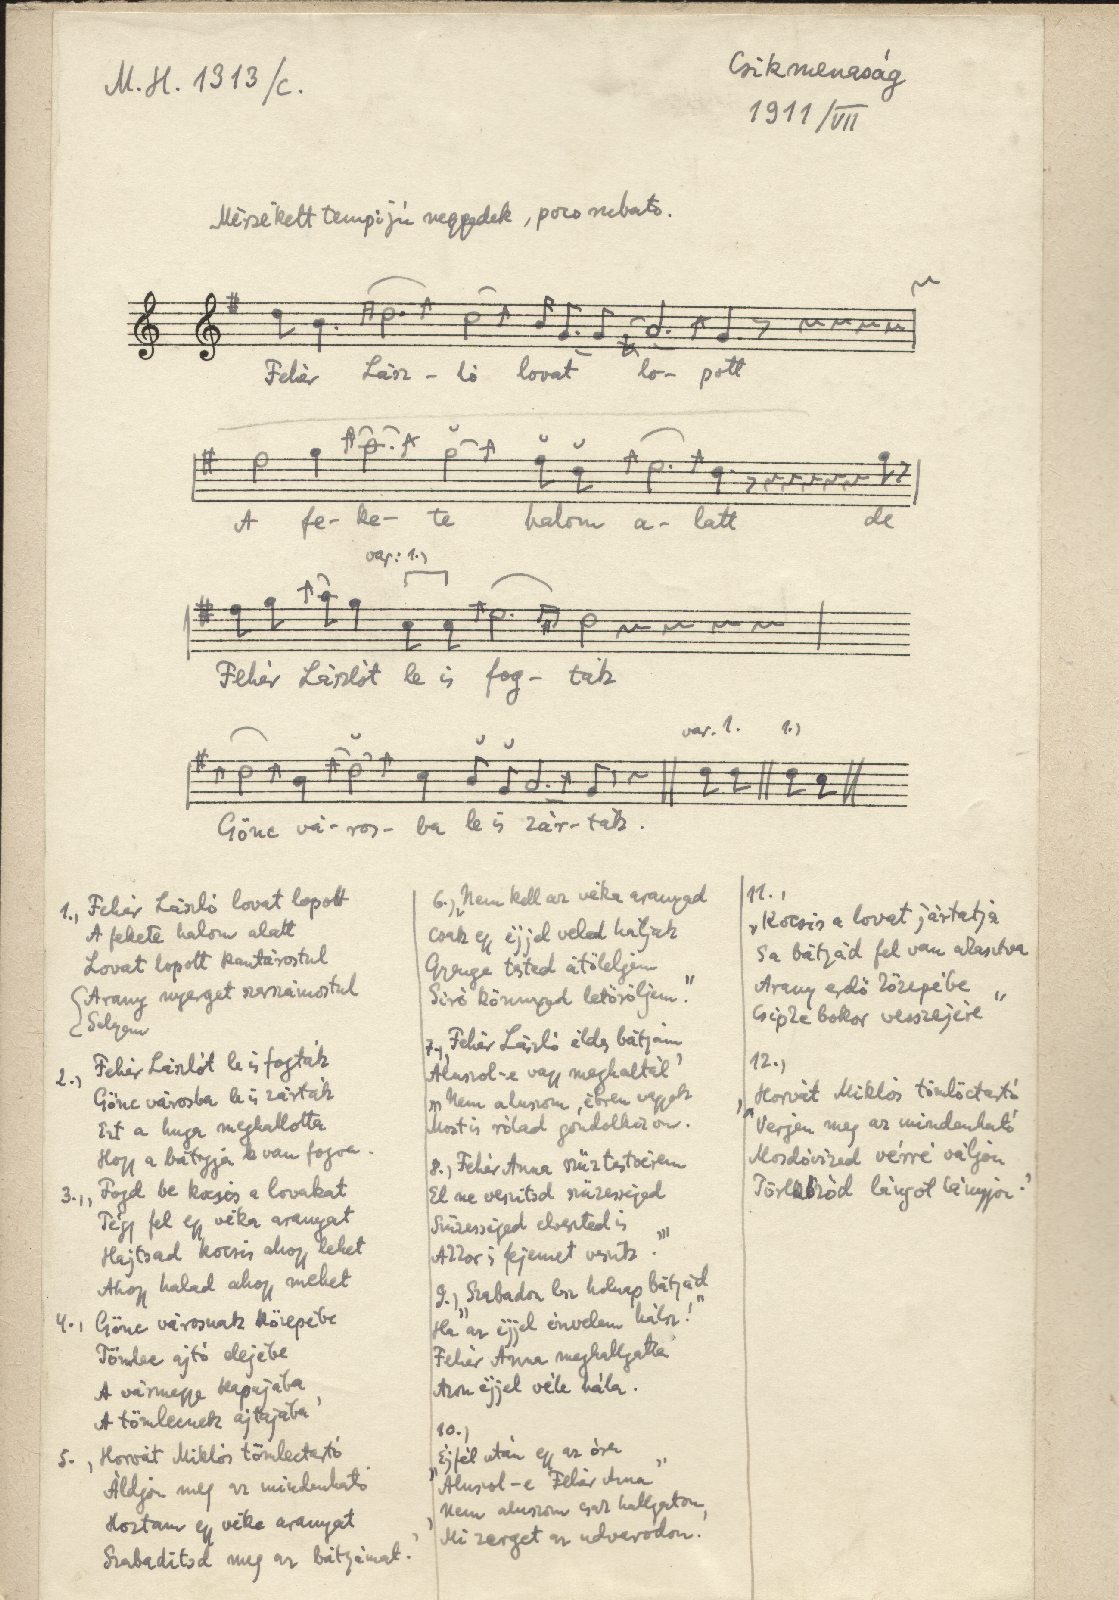 M. H. 1313/c.
Csikmenaság
1911/VII
Mérsékelt tempójú negyedek, poco rubato.
Fehér Lász-ló lovat lo-pott
A fe-ke-te halom a-latt de
var: 1.,
Fehér Lászlót le is fog-ták
var. 1. 1.,
Gönc vá-ros-ba le is zár-ták.
1., Fehér László lovat lopott
A fekete halom alatt
Lovat lopott kantárostul
Arany nyerget szerszámostul
Selyem
2., Fehér Lászlót le is fogták
Gönc városba le is zárták
Ezt a huga meghallotta
Hogy a bátyja le van fogva.
3., „Fogd be kocsis a lovakat
Tégy fel egy véka aranyat
Hajtsad kocsis ahogy lehet
Ahogy halad ahogy mehet
4., Gönc városnak közepébe
Tömlec ajtó elejébe
A vármegye kapujába
A tömlecnek ajtajába
5., Horvát Miklós tömlectartó
Áldjon meg az mindenható
Hoztam egy véka aranyat
Szabaditsd meg az bátyámat.
6., „Nem kell az véka aranyad
Csak egy éjjel veled háljak
Gyenge tested átöleljem
Siró könnyed letöröljem."
7., „Fehér László édes bátyám
Aluszol-e vagy meghaltál"
„Nem aluszom, ébren vagyok
Most is rólad gondolkozom.
8., „Fehér Anna szűz testvérem
El ne veszitsd szüzességed
Szüzességed elveszted is
Akkor is fejemet veszik."
9., „Szabadon lesz holnap bátyád
Ha az éjjel énvelem hálsz!"
Fehér Anna meghallgatta
Azon éjjel véle hála.
10.,
Éjfél után egy az óra
„Aluszol-e Fehér Anna"
Nem aluszom csak hallgatom,
Mi zerget az udvarodon.
11.,
„Kocsis a lovat jártatja
Sa bátyád fel van akasztva
Arany erdő közepébe
Csipke bokor vesszejére"
12.,
„Horvát Miklós tömlöctartó
Verjen meg az mindenható
Mosdóvized vérré váljon
Törlköződ lángot hányjon."